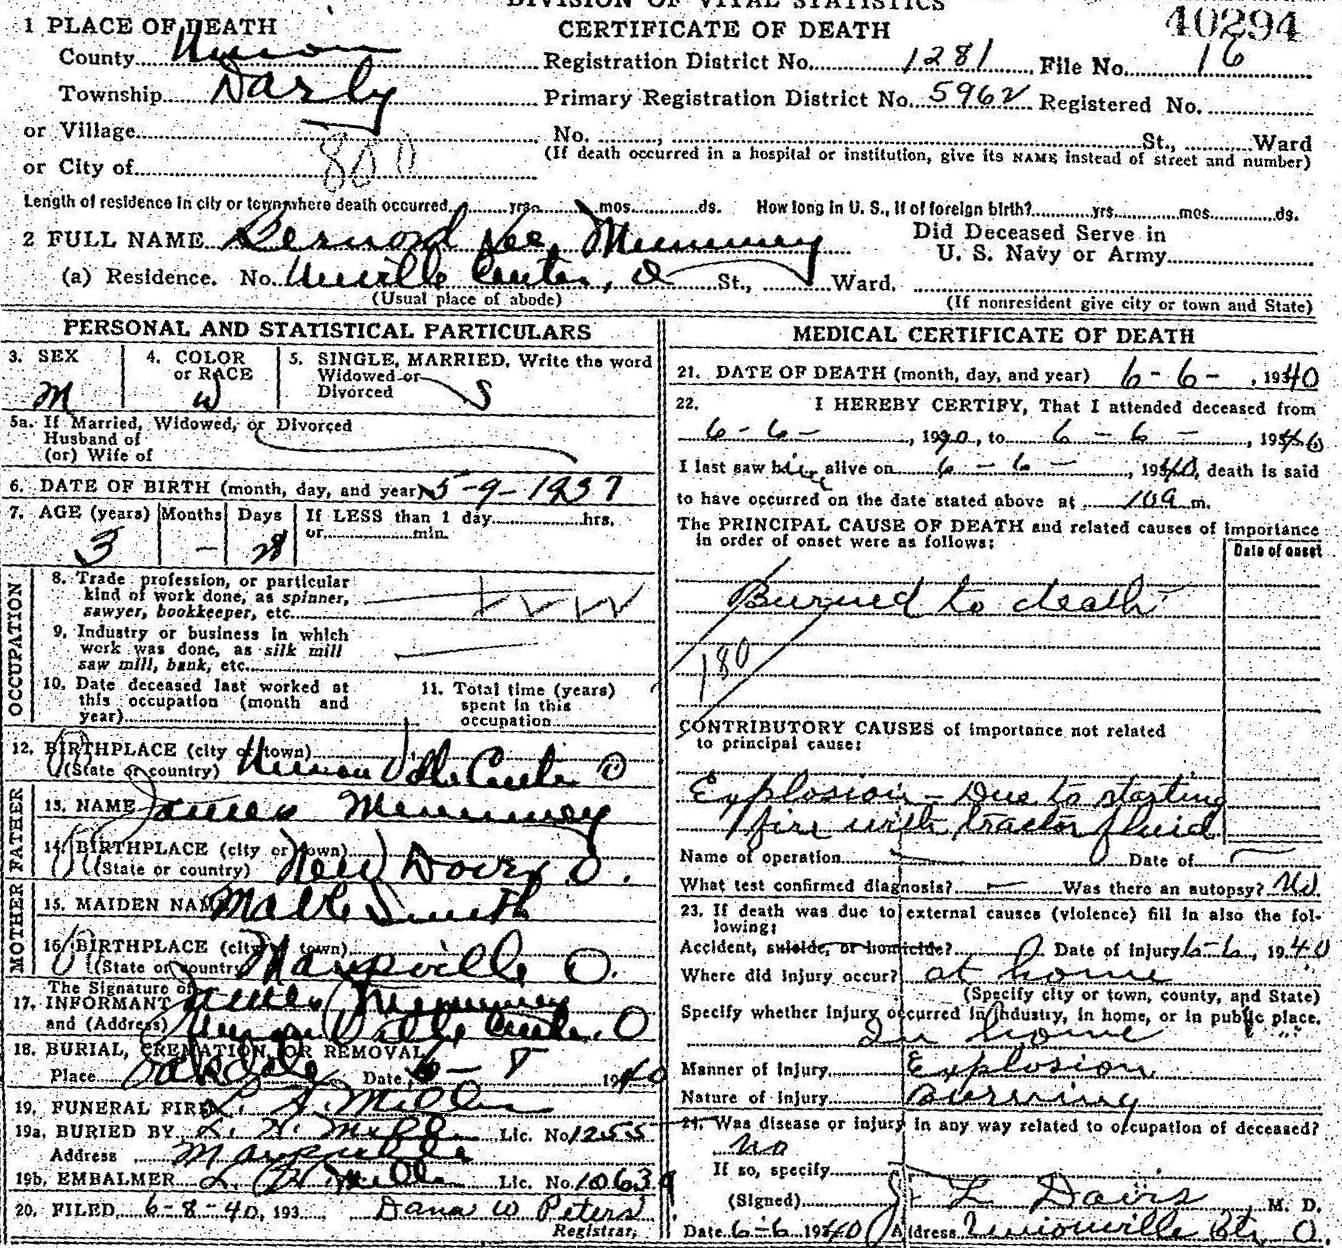 DIVISION OF VITAL STATISTICS
CERTIFICATE OF DEATH
40294
1 PLACE OF DEATH
County Union
Registration District No. 1281 File No. 16
Township Darby
Primary Registration District No. 5962 Registered No.
or Village
No. , St., Ward
(If death occurred in a hospital or institution, give its NAME instead of street and number)
or City of
800
Length of residence in city or town where death occurred yrs. mos. ds. How long in U. S., if of foreign birth? yrs. mos. ds.
2 FULL NAME Bernard Lee Mummey
Did Deceased Serve in
U. S. Navy or Army
(a) Residence. No. Unville Center, O St., Ward.
(Usual place of abode)
(If nonresident give city or town and State)
PERSONAL AND STATISTICAL PARTICULARS
3. SEX
M
4. COLOR
or RACE
W
5. SINGLE, MARRIED, Write the word
Widowed or
Divorced
S
5a. If Married, Widowed, or Divorced
Husband of
(or) Wife of
6. DATE OF BIRTH (month, day, and year) 5-9-1937
7. AGE (years) Months Days If LESS than 1 day hrs.
or min.
3 – 28
OCCUPATION
8. Trade, profession, or particular
kind of work done, as spinner,
sawyer, bookkeeper, etc.
9. Industry or business in which
work was done, as silk mill
saw mill, bank, etc.
10. Date deceased last worked at
this occupation (month and
year)
11. Total time (years)
spent in this
occupation
12. BIRTHPLACE (city or town)
(State or country) Union Ville Center O
FATHER
13. NAME James Mummey
14. BIRTHPLACE (city or town)
(State or country) New Dover O.
MOTHER
15. MAIDEN NAME Mable Smith
16. BIRTHPLACE (city or town)
(State or country) Marysville O.
The Signature of
17. INFORMANT James Mummey
and (Address) Union Ville Center, O
18. BURIAL, CREMATION, OR REMOVAL
Place Oakdale Date 6-8 1940
19. FUNERAL FIRM L. A. Miller
19a. BURIED BY Lic. No. 1255
Address Marysville
19b. EMBALMER Lic. No.
20. FILED 6-8-40, 193 Dana W Peters
Registrar.
MEDICAL CERTIFICATE OF DEATH
21. DATE OF DEATH (month, day, and year) 6-6-, 1940
22. I HEREBY CERTIFY, That I attended deceased from
6-6-, 1940, to 6-6-, 1940
I last saw him alive on 6-6-, 1940, death is said
to have occurred on the date stated above at 10a m.
The PRINCIPAL CAUSE OF DEATH and related causes of importance
in order of onset were as follows:
Date of onset
Burned to death
180
CONTRIBUTORY CAUSES of importance not related
to principal cause:
Explosion – Due to starting
fire with tractor fluid
Name of operation Date of
What test confirmed diagnosis? – Was there an autopsy? No
23. If death was due to external causes (violence) fill in also the fol-
lowing:
Accident, suicide, or homicide? Date of injury 6-6, 1940
Where did injury occur? at home
(Specify city or town, county, and State)
Specify whether injury occurred in industry, in home, or in public place.
In home
Manner of Injury Explosion
Nature of Injury Burning
24. Was disease or injury in any way related to occupation of deceased?
No
If so, specify
(Signed) L Davis M. D.
Date 6-6 1940 Address Unionville Ctr, O.